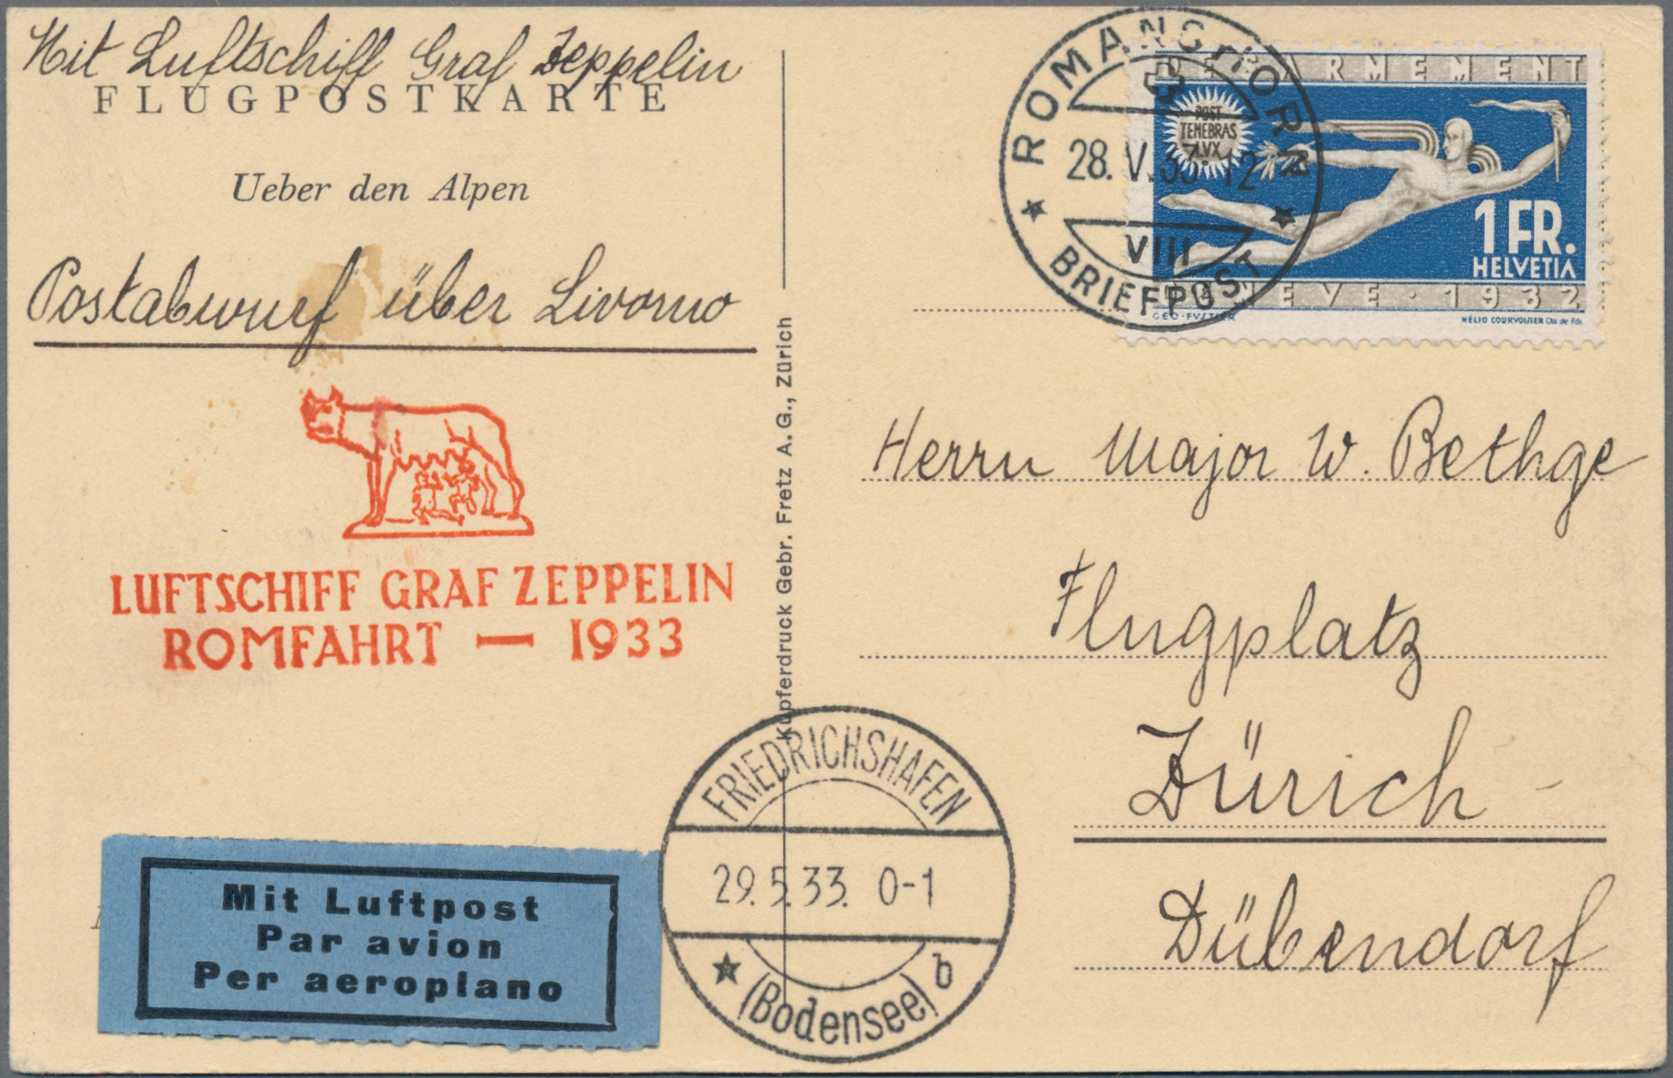 Mit Luftschiff Graf Zeppelin
FLUGPOSTKARTE
Ueber den Alpen
Postabwurf über Livorno
LUFTSCHIFF GRAF ZEPPELIN
ROMFAHRT — 1933
Mit Luftpost
Par avion
Per aeroplano
Kupferdruck Gebr. Fretz A.G., Zürich
FRIEDRICHSHAFEN
29.5.33. 0-1
(Bodensee) b
ROMANSHORN
28.V.33-12
VIII
BRIEFPOST
POST
TENEBRAS
LVX
1 FR.
HELVETIA
GENEVE · 1932
HELIO COURVOISIER
Herrn Major W. Bethge
Flugplatz
Zürich -
Dübendorf